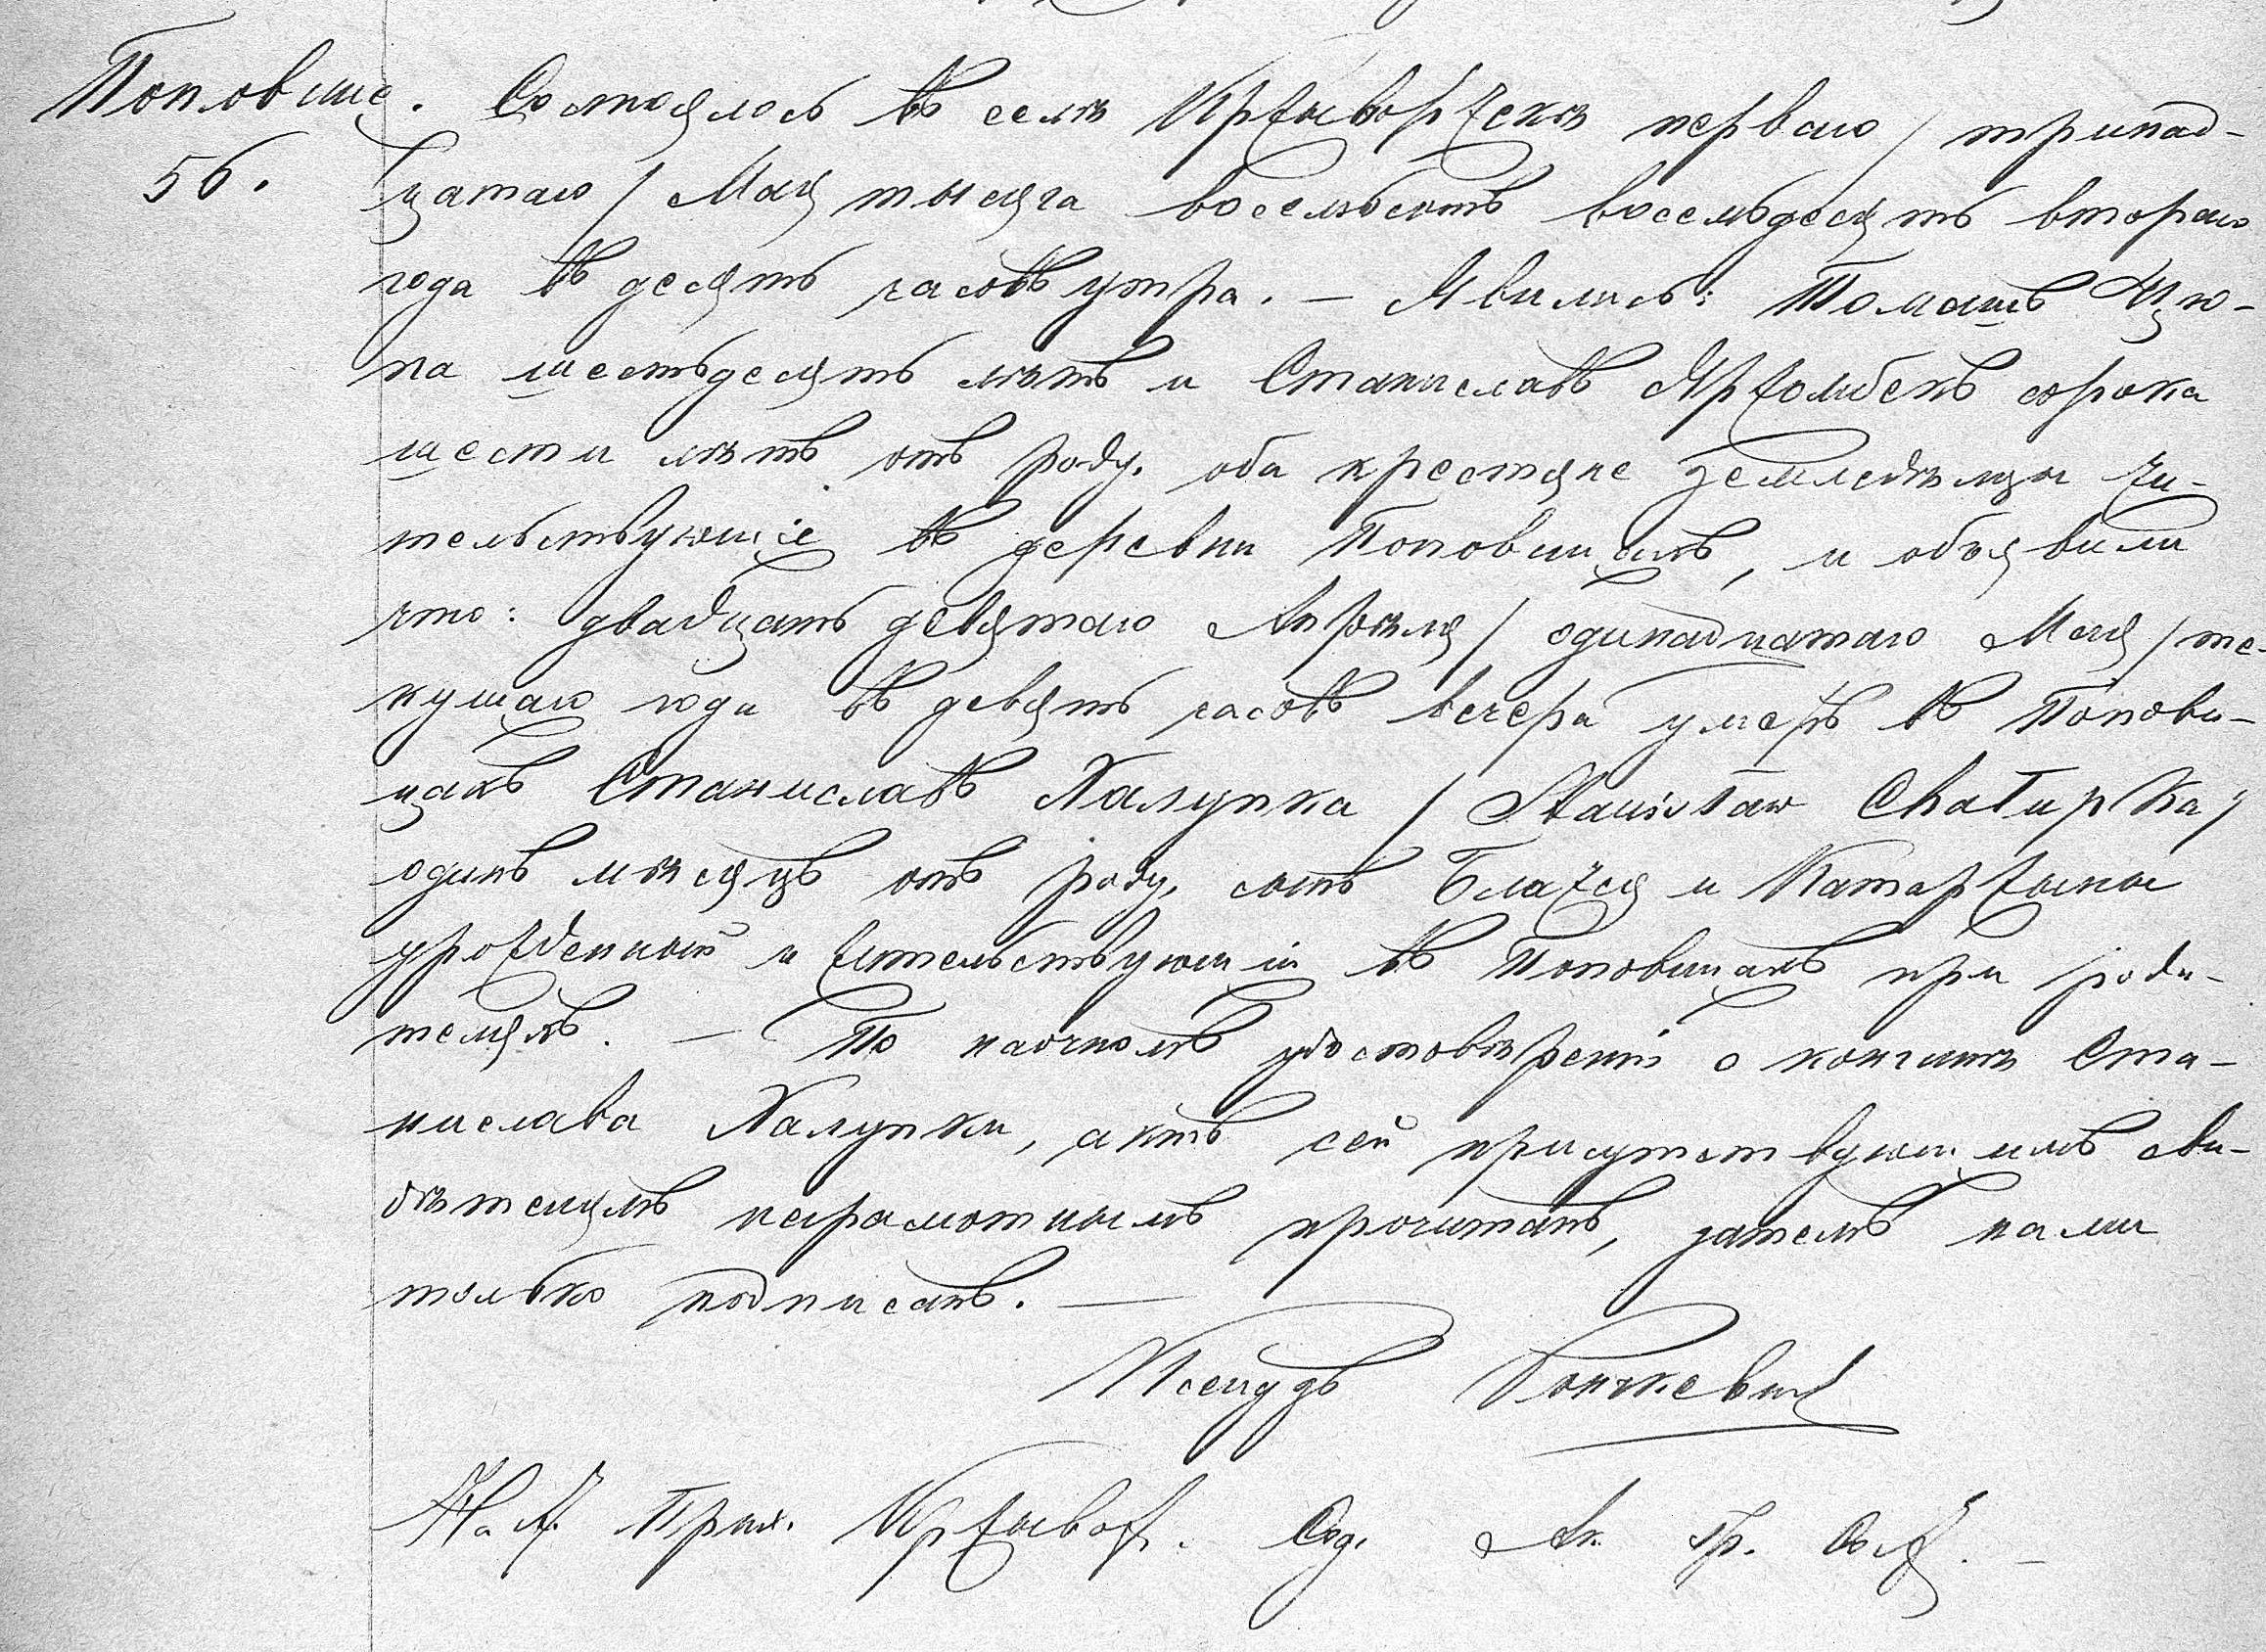 Поповице. Состоялось въ селѣ Кржыворжекѣ перваго / тринад-
56. цатаго / Мая тысяча восемьсотъ восемьдесятъ втораго
года въ десять часовъ утра. — Явились: Томашъ Цю-
па шестьдесятъ лѣтъ и Станиславъ Яржомбекъ сорока
шести лѣтъ отъ роду, оба крестяне земледѣльцы жи-
тельствующіе въ деревни Поповицахъ, и объявили
что: двадцать девятаго Апрѣля / одинадцатаго Мая / те-
кущаго года въ девять часовъ вечера умеръ въ Попови-
цахъ Станиславъ Халупка / Stanisław Chałupka /
одинъ мѣсяцъ отъ роду, сынъ Блажея и Катаржыны
урожденный и жительствующій въ Поповицахъ при роди-
теляхъ. — По наочномъ удостовѣреніи о кончинѣ Ста-
нислава Халупки, актъ сей присутствующимъ сви-
дѣтелямъ неграмотнымъ прочитанъ, затемъ нами
только подписанъ. —
Ксендзъ
Прих. Кржывор. Сод. Ак. Гр. Сост. —